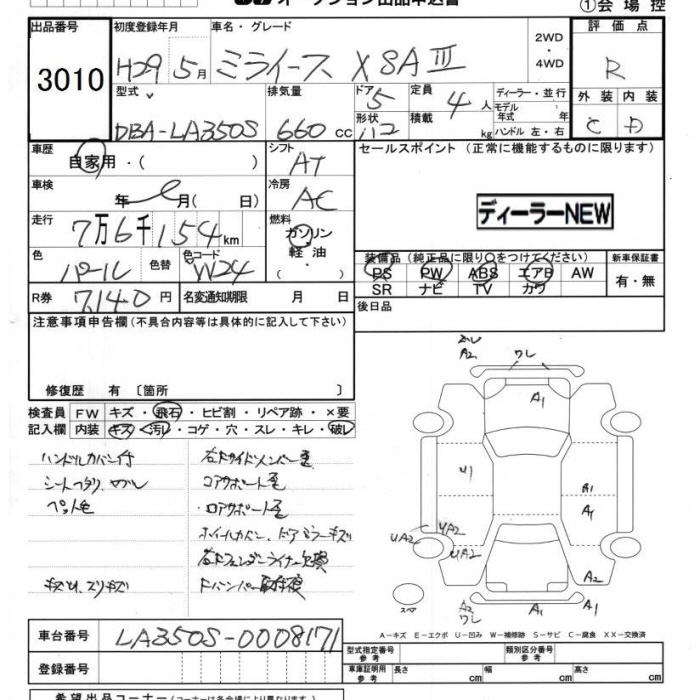 オークション出品申込書
①会場控
出品番号 初度登録年月 車名・グレード 2WD ・ 4WD 評価点
3010 H29 5月 ミライース X SAⅢ R
型式 排気量 ドア 5 定員 4人 ディーラー・並行 外装 内装
DBA-LA350S 660cc 形状 ハコ 積載 kg モデル年式 年 C D
ハンドル 左・右
車歴 自家用・( ) シフト AT セールスポイント (正常に機能するものに限ります)
車検 年 月( 日) 冷房 AC
ディーラーNEW
走行 7万6千154km 燃料 ガソリン・軽油・( )
色 パール 色替 色コード W24
装備品 (純正品に限り○をつけてください) 新車保証書
PS PW ABS エアB AW 有・無
SR ナビ TV カワ
R券 7,140円 名変通知期限 月 日 後日品
注意事項申告欄 (不具合内容等は具体的に記入して下さい)
修復歴 有 〔箇所 〕
検査員記入欄 FW キズ・飛石・ヒビ割・リペア跡・×要
内装 キズ・汚レ・コゲ・穴・スレ・キレ・破レ
ハンドルカバー付
コアサポート歪
ロアサポート歪
A2 ワレ
A1
U1 A1
A1
UA2 UA2
UA2
A2
A2 ワレ A1 A2
スペア
A-キズ E-エクボ U-凹み W-補修跡 S-サビ C-腐食 XX-交換済
車台番号 LA350S-0008171
型式指定番号 参考 類別区分番号 参考
登録番号 参考 長さ cm 幅 cm 高さ cm
希望出品コーナー (コーナーは各会場により異なります)